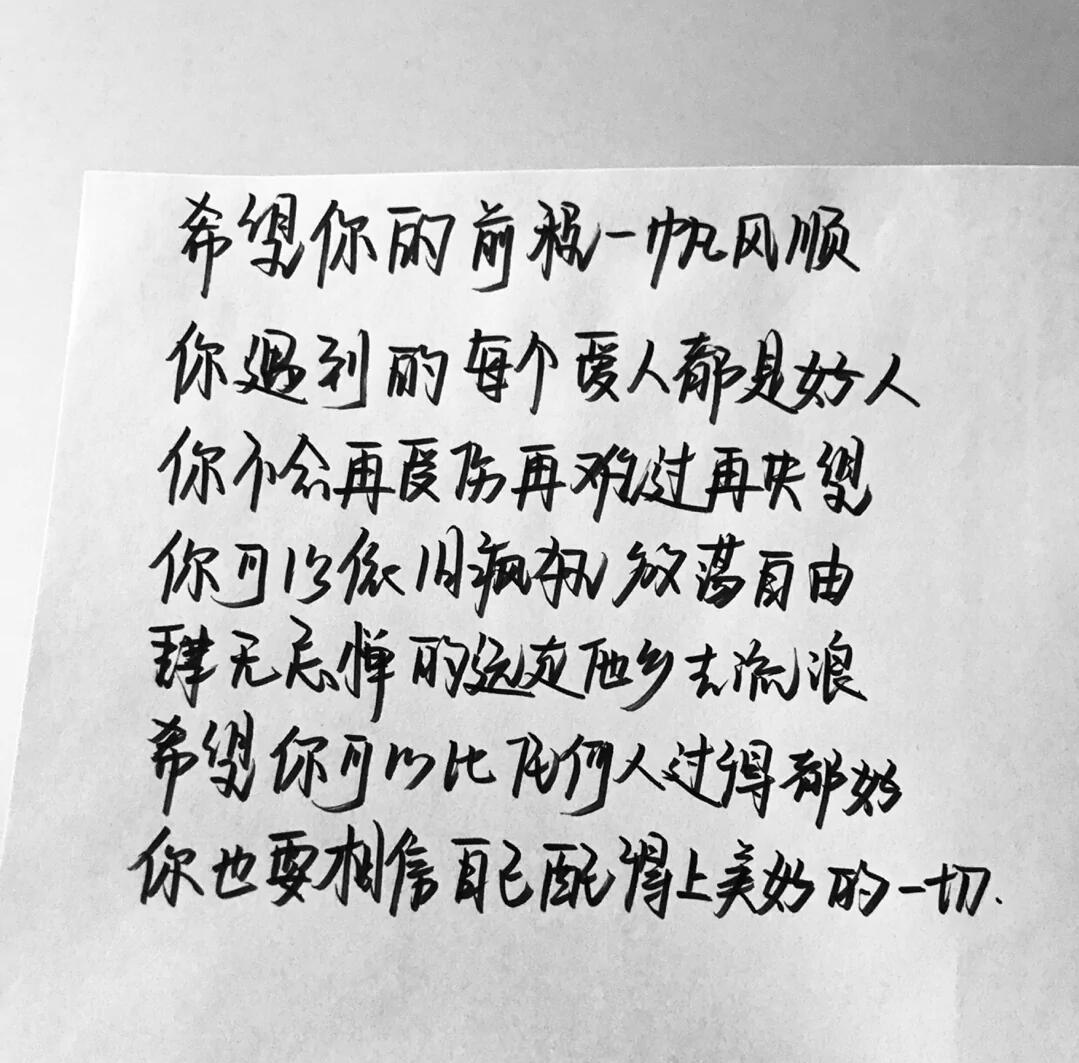 希望你的前程一帆风顺
你遇到的每个爱人都是好人
你不会再受伤再难过再失望
你可以依旧疯疯放荡自由
肆无忌惮的远走他乡去流浪
希望你可以比任何人过得都好
你也要相信自己配得上美好的一切.